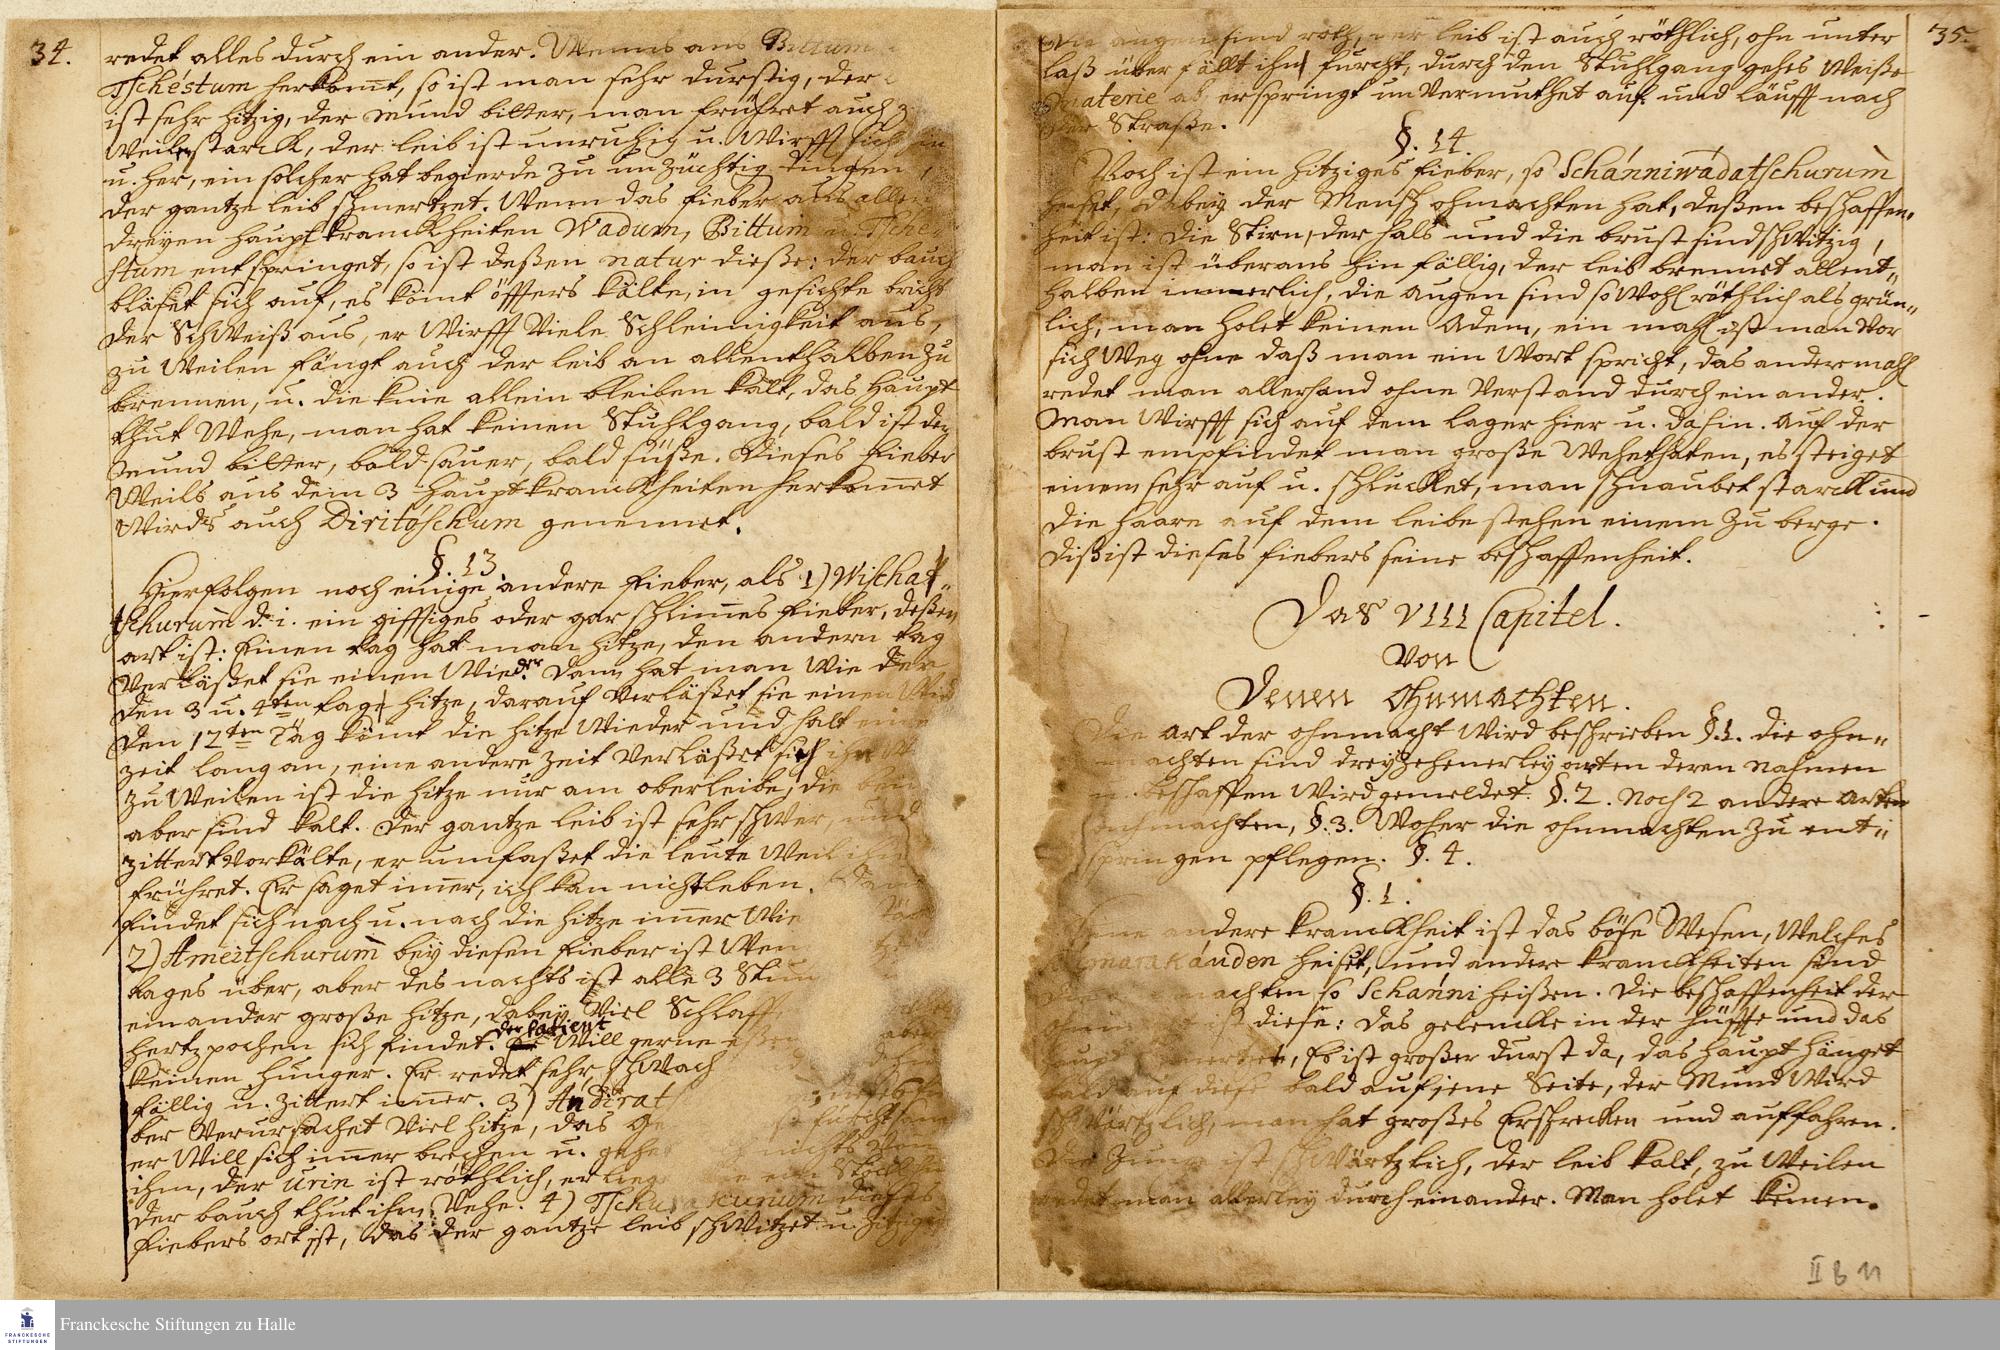 34.
redet alles durch ein ander. Wenns aus Bittum
Tschéstum herkomt, so ist man sehr durstig, der
ist sehr hitzig, der mund bitter, man frühret auch
Weilen starck, der leib ist unruhig u. Wirfft sich hin
u. her, ein solcher hat begierde zu unzüchtig dingen,
der gantze leib schmertzet. Wenn das fieber aus allen
dreyen haupt kranckheiten Wadum, Bittum u. Tsche-
stum entspringet, so ist deßen natur dieße: der bauch
bläset sich auf, es kömt öffters kälte, im gesichte bricht
der Schweiß aus, er Wirfft Viele Schleimigkeit aus,
zu Weilen fängt auch der leib an allenthalben zu
brennen, u. die knie allein bleiben kalt, das haupt
thut Wehe, man hat keinen Stuhlgang, bald ist der
mund bitter, bald sauer, bald süße. Dieses fieber
Weils aus dem 3 hauptkranckheiten herkommet
Wirds auch Diritóschum genennet.
§. 13.
Hier folgen noch einige andere fieber, als 1) Wischat-
tschurum d. i. ein gifftiges oder gar schlimmes fieber, deßen
art ist: Einen tag hat man hitze, den andern tag
Verläßet sie einen Wieder. Dann hat man Wieder
den 3 u. 4ten tag hitze, darauf Verläßet sie einen
den 12ten Tag kömt die hitze Wieder und halt eine
zeit lang an, eine andere zeit Verläßet sie ihn
zu Weilen ist die hitze nur am oberleibe, die bein
aber sind kalt. Der gantze leib ist sehr schwer, und
zittert Vor kälte, er umfaßet die leute Weil ihn
frühret. Er saget immer, ich kan nicht leben.
findet sich nach u. nach die hitze immer Wie
2) Ameitschurum bey diesen fieber ist
tages über, aber des nachts ist alle 3 Stun
einander große hitze, dabey Viel Schlaff
hertzpochen sich findet. der Patient Will gerne eßen aber
keinen hunger. Er redet sehr schwach
fällig u. zittert immer. 3) Andirat
ber Verursachet Viel hitze, das furchtsam
er Will sich immer brechen u. gehe nichts Von
ihm, der Urin ist röthlich, er
der bauch thut ihm Wehe. 4) dieses
fiebers art ist, das der gantze leib schwitzet u. hitzig
35.
Die augen sind roth, der leib ist auch röthlich, ohn unter
laß überfällt ihn furcht, durch den Stuhlgang gehet Weiße
materie ab, er springt un Vermuthet auf und läufft nach
der Straße.
§. 14.
Noch ist ein hitziges fieber, so Schánniwádatschurum
heiset, dabey der Mensch ohnmachten hat, deßen beschaffen-
heit ist: Die Stirn, der hals und die brust sind schwitzig,
man ist überaus hin fällig, der leib brennet allent-
halben innnerlich, die augen sind so Wohl röthlich als grün-
lich, man holet keinen Adem, ein mahl ist man Vor
sich Weg ohne daß man ein Wort spricht, das ander mahl
redet man allerhand ohne Verstand durch ein ander.
Man Wirfft sich auf dem lager hier u. dahin. Auf der
brust empfindet man große Wehethaten, es steiget
einem sehr auf u. schlucket, man schnaubet starck und
die haare auf dem leibe stehen einem zu berge.
diß ist dieses fiebers seine beschaffenheit.
Das VIII Capitel.
Von
Denen Ohnmachten.
Die Art der ohnmacht Wird beschrieben §.1. die ohn-
machten sind dreyzehenerley arten deren nahmen
u. beschaffen Wird gemeldet. §. 2. Noch 2 andere Arten
ohnmachten, §. 3. Woher die ohnmachten zu ent-
springen pflegen. §. 4.
§. 1.
Eine andere kranckheit ist das böse Wesen, Welches
heiset, und andere kranckheiten sind
machten so Schanni heißen. Die beschaffenheit der
diese: Das gelencke in der hüffte und das
haupt schmertzet, Es ist großer durst da, das haupt hänget
bald auf diese bald auf jene Seite, der Mund Wird
schwärtzlich, man hat großes Erschrecken und auffahren.
Die Zunge ist schwärtzlich, der leib kalt, zu Weilen
redet man allerley durch einander. Man holet keinen
II B 11
FRANCKESCHE STIFTUNGEN
Franckesche Stiftungen zu Halle